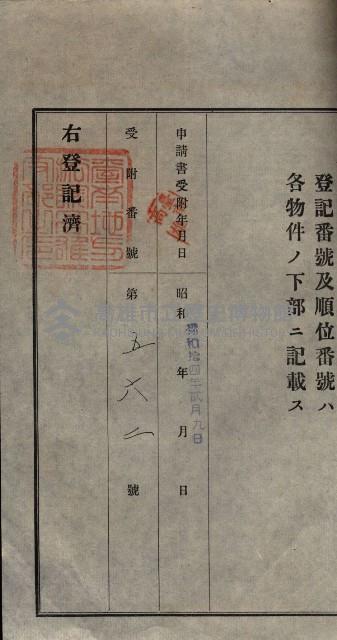 登記番號及順位番號ハ
各物件ノ下部ニ記載ス
申請書受附年月日 昭和 年 月 日
昭和拾四年貳月九日
受附番號 第五六二號
右登記濟
高雄市立歷史博物館